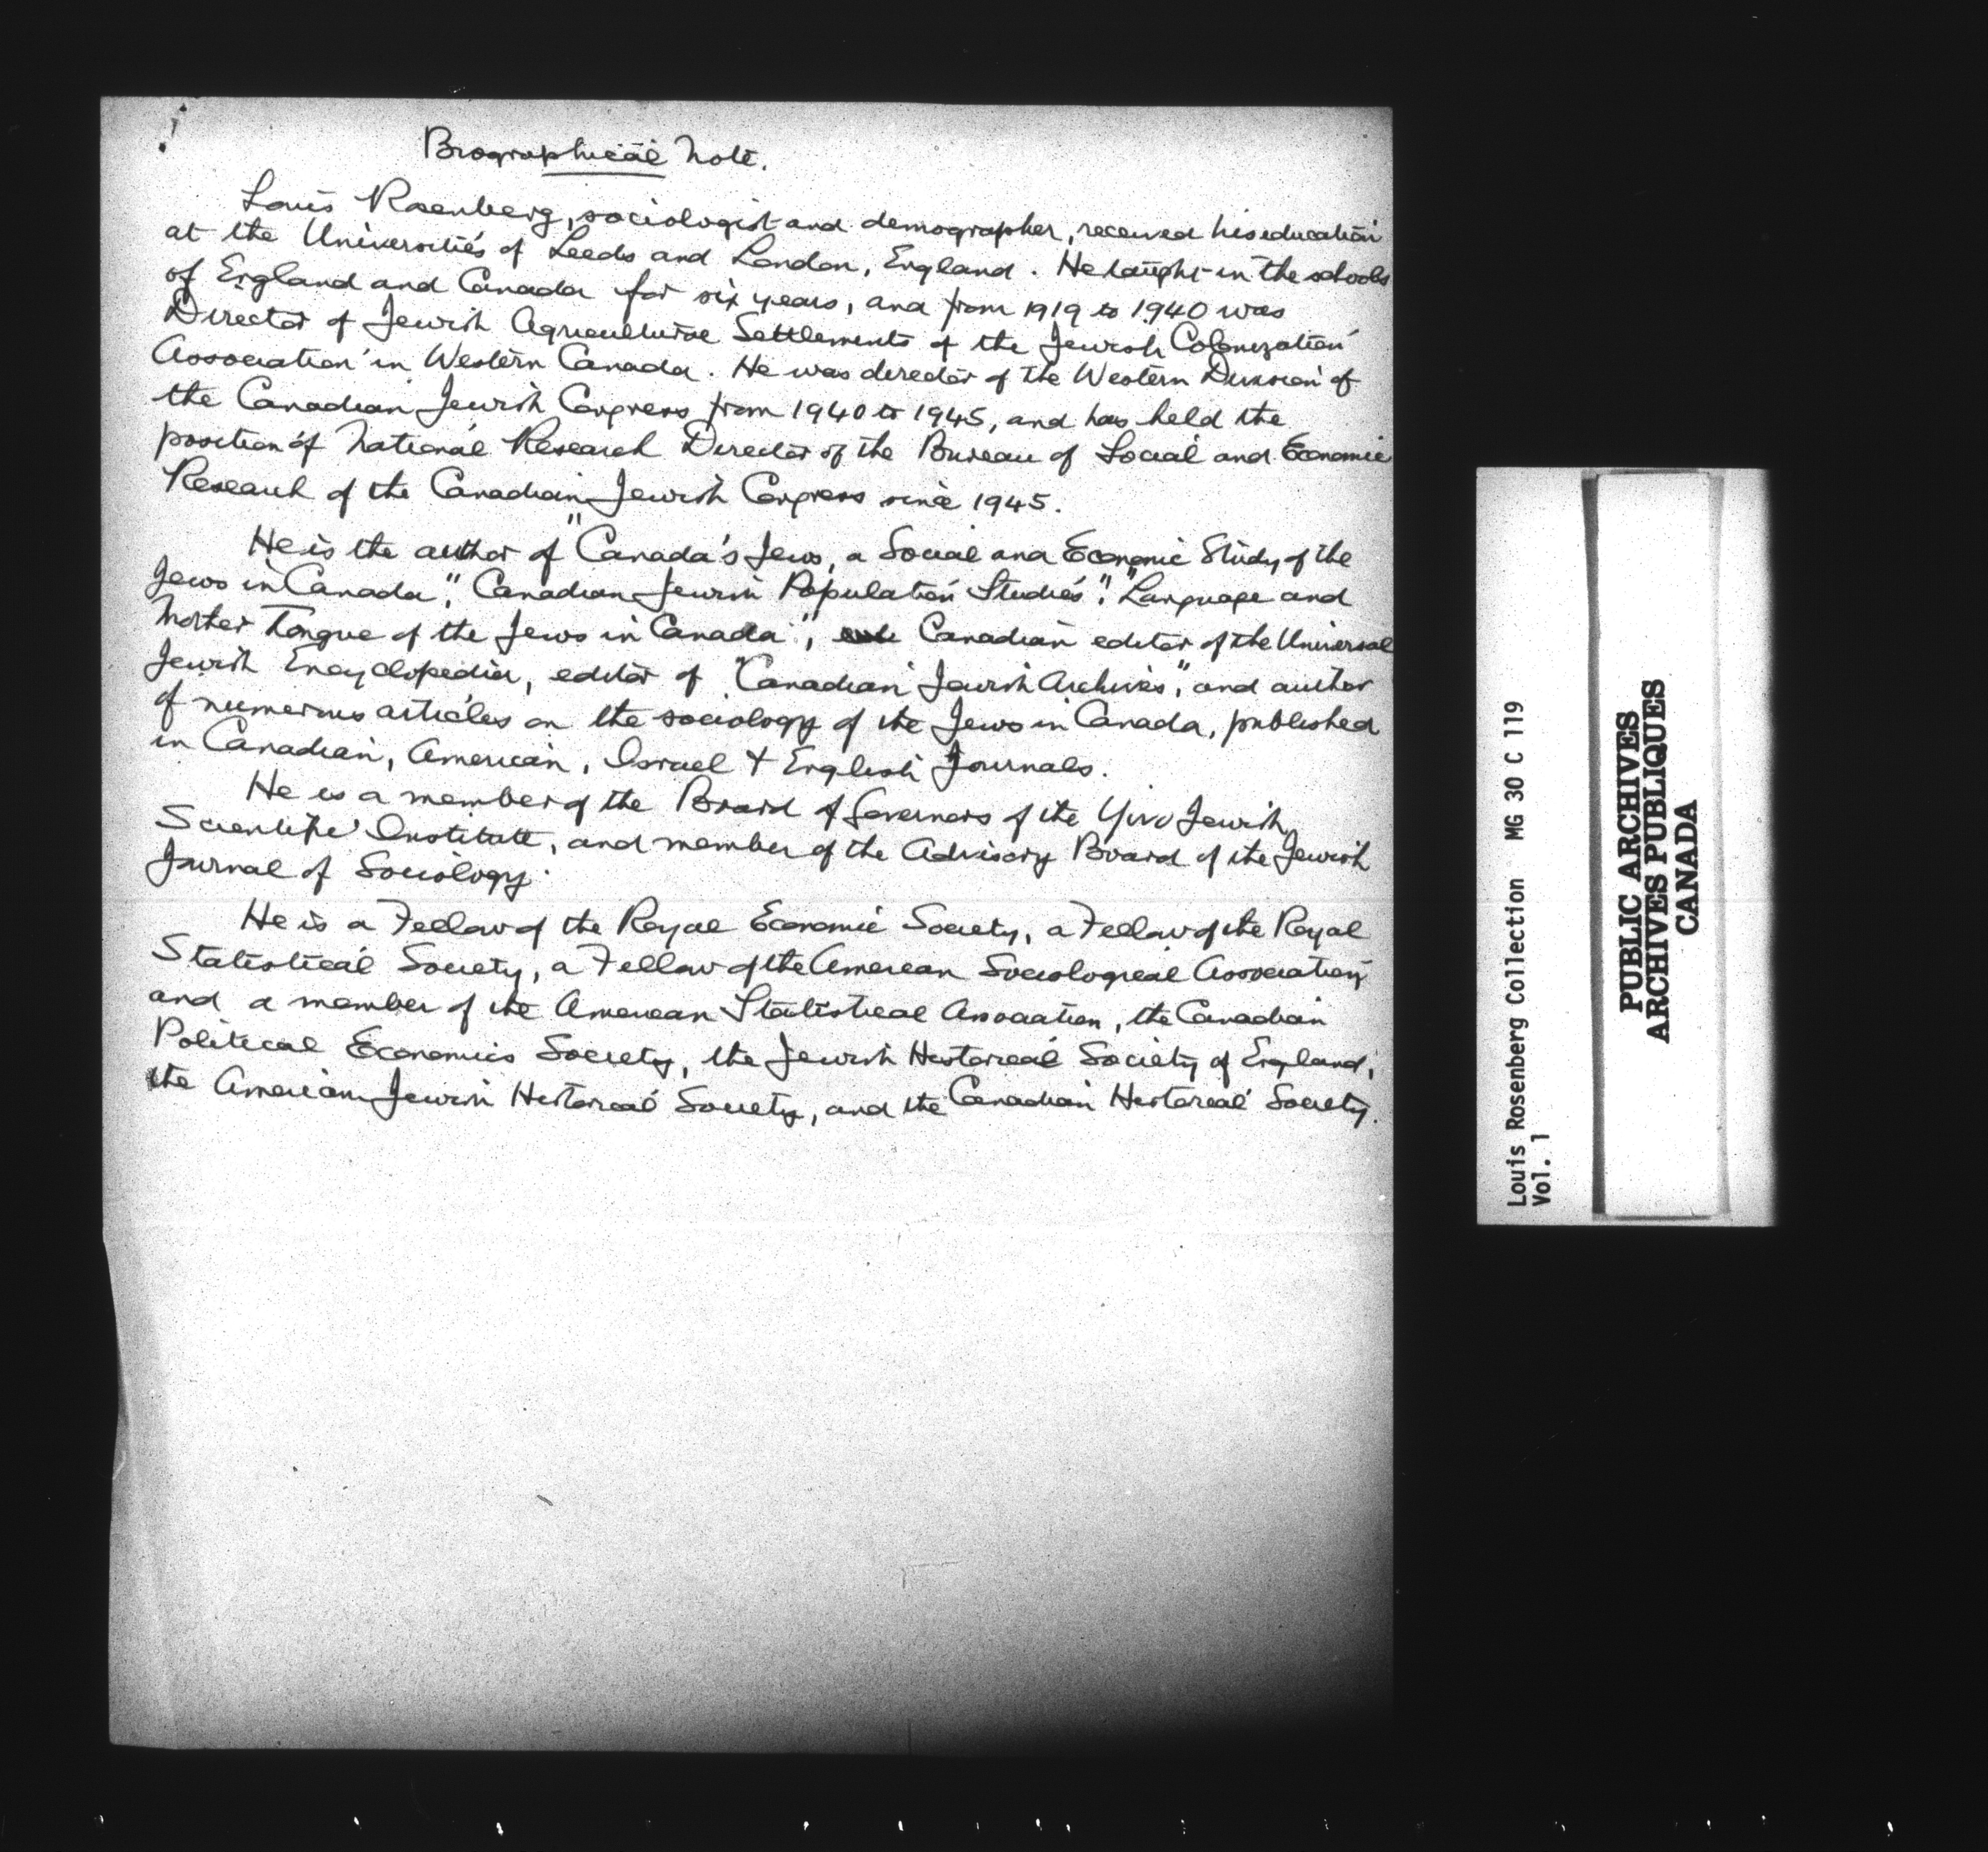 Biographical Note.
Louis Rosenberg, sociologist and demographer, received his education
at the Universities of Leeds and London, England. He taught in the schools
of England and Canada for six years, and from 1919 to 1940 was
Director of Jewish Agricultural Settlements of the Jewish Colonization
Association in Western Canada. He was director of the Western Division of
the Canadian Jewish Congress from 1940 to 1945, and has held the
position of National Research Director of the Bureau of Social and Economic
Research of the Canadian Jewish Congress since 1945.
He is the author of "Canada's Jews, a Social and Economic Study of the
Jews in Canada", "Canadian Jewish Population Studies", "Language and
Mother Tongue of the Jews in Canada", Canadian editor of the Universal
Jewish Encyclopedia, editor of "Canadian Jewish Archives", and author
of numerous articles on the sociology of the Jews in Canada, published
in Canadian, American, Israel & English Journals.
He is a member of the Board of Governors of the Yivo Jewish
Scientific Institute, and member of the Advisory Board of the Jewish
Journal of Sociology.
He is a Fellow of the Royal Economic Society, a Fellow of the Royal
Statistical Society, a Fellow of the American Sociological Association
and a member of the American Statistical Association, the Canadian
Political Economics Society, the Jewish Historical Society of England,
the American Jewish Historical Society, and the Canadian Historical Society.
Louis Rosenberg Collection MG 30 C 119
Vol. 1
PUBLIC ARCHIVES
ARCHIVES PUBLIQUES
CANADA